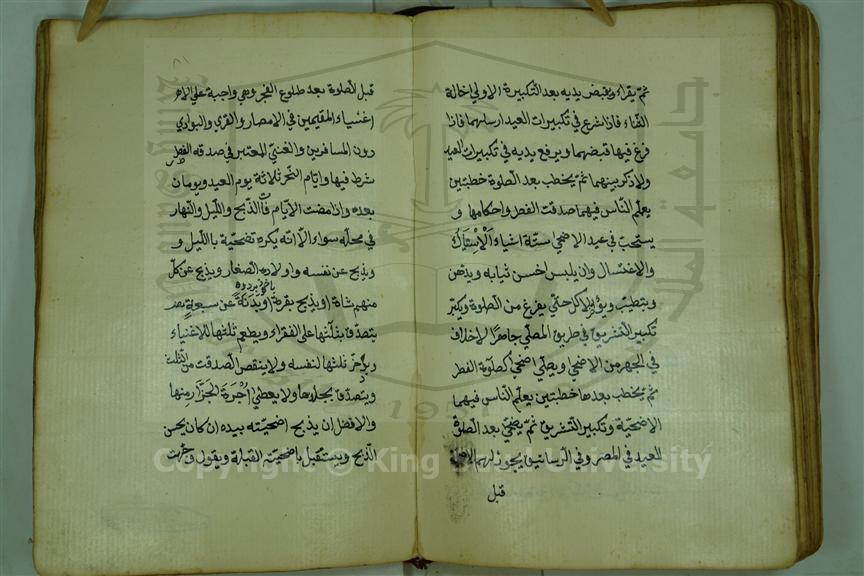 ثم يقراء ويقبض يديه بعد التكبيرة الاولى حالة
الثناء فاذا شرع في تكبيرات العيد ارسلهما فاذا
فرغ فيها قبضهما ويرفع يديه في تكبيرات العيد
ولا ذكر بينهما ثم يخطب بعد الصلوة خطبتين
يعلم الناس فيهما صدقت الفطر واحكامها و
يستحب في عيد الاضحى ستة اشياء الاستياك
والاغتسال وان يلبس احسن ثيابه ويدهن
ويتطيب ويؤخر الاكل حتى يفرغ من الصلوة ويكبر
تكبير التشريق في طريق المصلى جاهرا لا خلاف
في الجهر من الاضحى ويصلي اضحى كصلوة الفطر
ثم يخطب بعدها خطبتين يعلم الناس فيهما
الاضحية وتكبير التشريق ثم يضحى بعد الصلوة
للعيد في المصر وفي الرساتيق يجوز لهم
قبل
قبل الصلوة بعد طلوع الفجر وهي واجبة على
اغنياء المقيمين في الامصار والقرى والبوادي
دون المسافرين والغني المعتبر في صدقه الفطر
شرط فيها وايام النحر ثلاثة يوم العيد ويومان
بعده واذا مضت الايام الذبح والليل والنهار
في محله سواء الا انه يكره تضحية باالليل و
ويذبح عن نفسه واولاده الصغار ويذبح عن كل
منهم شاة او يذبح بقرة او بدنة عن سبعة
يتصدق بثلثها على الفقراء ويطعم ثلثها للاغنياء
ويدخر ثلثها لنفسه ولا ينقص الصدقت من الثلث
ويتصدق بجلدها ولا يعطي اجرة الجزار منها
والافضل ان يذبح اضحيته بيده ان كان يحسن
الذبح ويستقبل باضحيته القبلة ويقول وجهت
Copyright © King Saud University
جامعة الملك سعود
1957